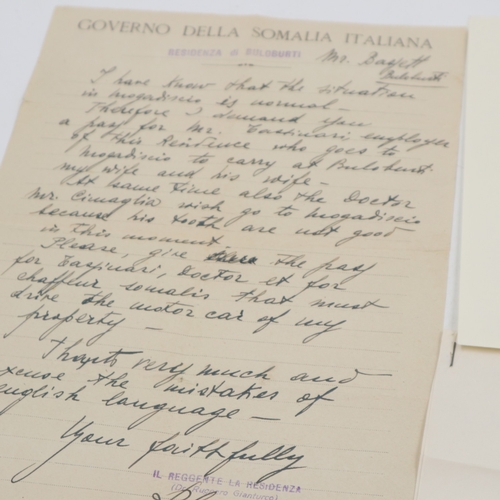 GOVERNO DELLA SOMALIA ITALIANA
RESIDENZA di BULOBURTI
Mr. Bagett
Buloburti
I have know that the situation
in mogadiscio is normal -
Therefore I demand you
a pass for Mr. Tassinari employer
of this Residence who goes to
Mogadiscio to carry at Buloburti
my wife and his wife -
At same time also the Doctor
Mr. Cimaglia wish go to mogadiscio
because his tooth are not good
in this moment
Please, give the pass
for Tassinari, Doctor et for
chaffeur somalis that must
drive the motor car of my
property -
Thanks very much and
xcuse the mistakes of
english language -
Your faithfully
IL REGGENTE LA RESIDENZA